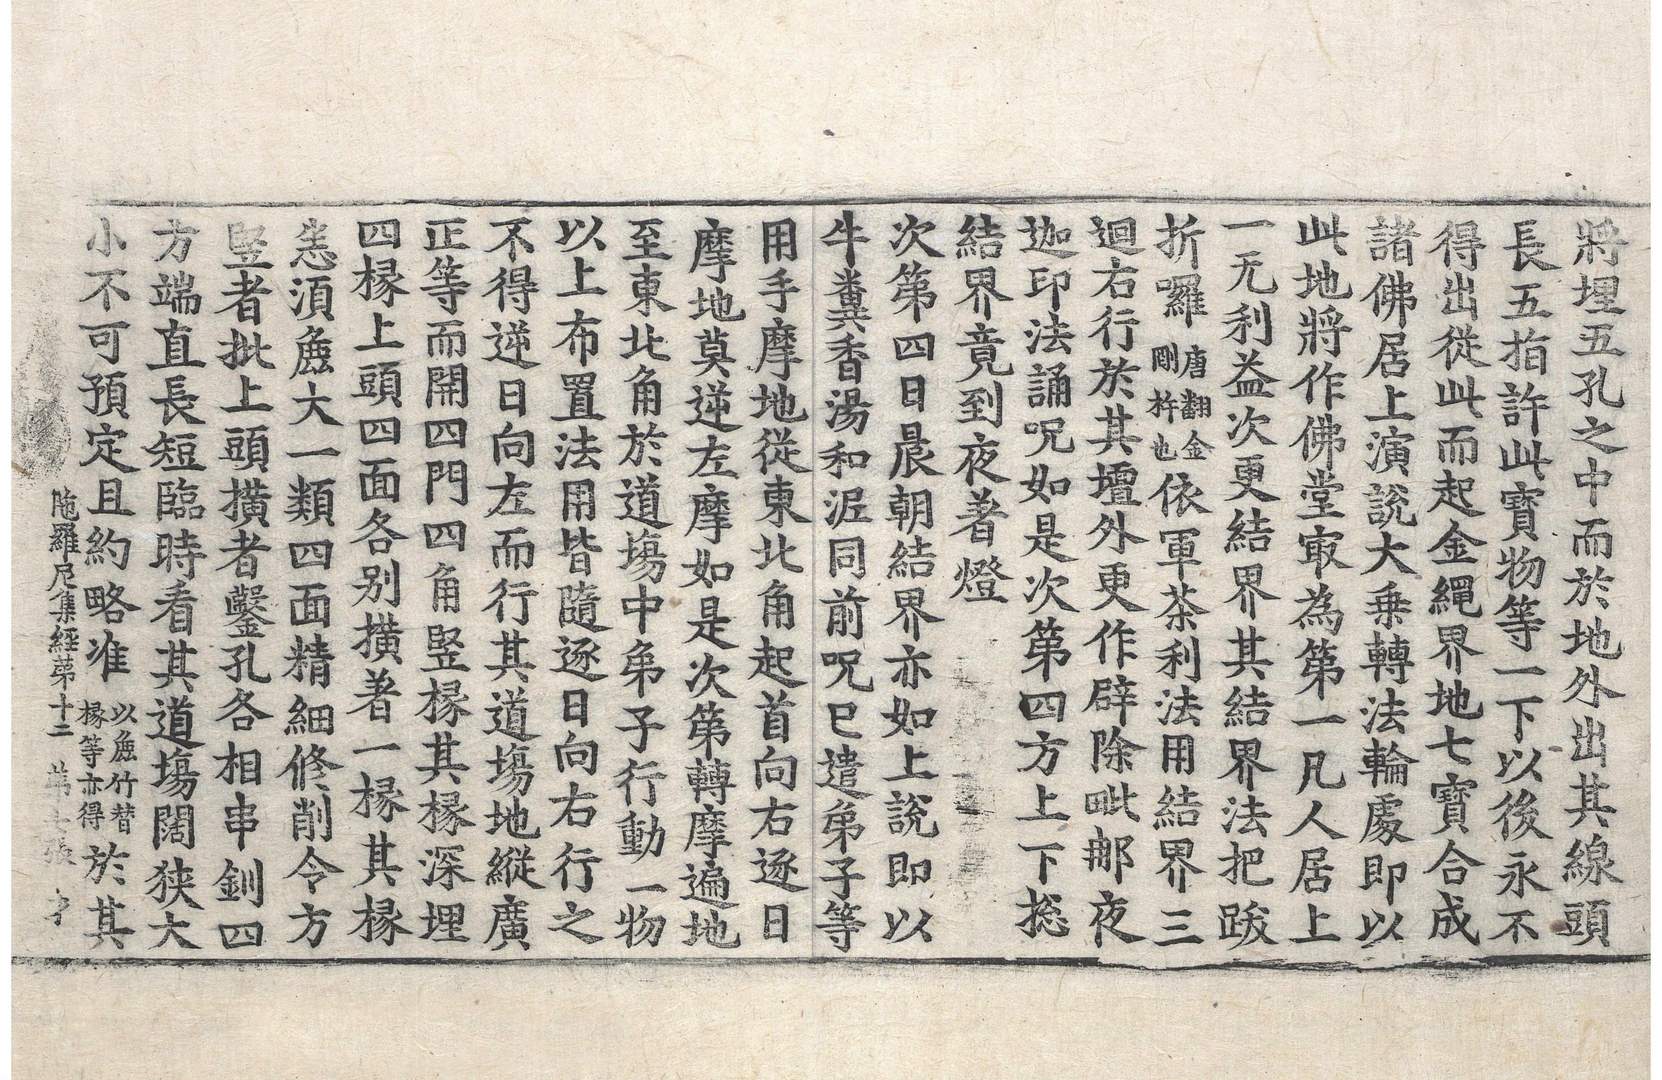 將埋五孔之中而於地外出其線頭
長五指許此寶物等一下以後永不
得出從此而起金繩界地七寶合成
諸佛居上演說大乗轉法輪處即以
此地將作佛堂㝡為第一凡人居上
一无利益次更結界其結界法把跋
折囉唐翻金剛杵也依軍茶利法用結界三
迴右行於其壇外更作辟除毗那夜
迦印法誦呪如是次第四方上下揔
結界竟到夜著燈
次第四日晨朝結界亦如上說即以
牛糞香湯和泥同前呪已遣弟子等
用手摩地從東北角起首向右逐日
摩地莫逆左摩如是次第轉摩遍地
至東北角於道塲中弟子行動一物
以上布置法用皆隨逐日向右行之
不得逆日向左而行其道塲地縱廣
正等而開四門四角竪椽其椽深埋
四椽上頭四面各別撗著一椽其椽
悉湏麁大一類四面精細修削令方
竪者批上頭撗者鑿孔各相串釧四
方端直長短臨時看其道塲闊狹大
小不可預定且約略准以麁竹替椽等亦得於其
陁羅尼集經第十二 第七張 才